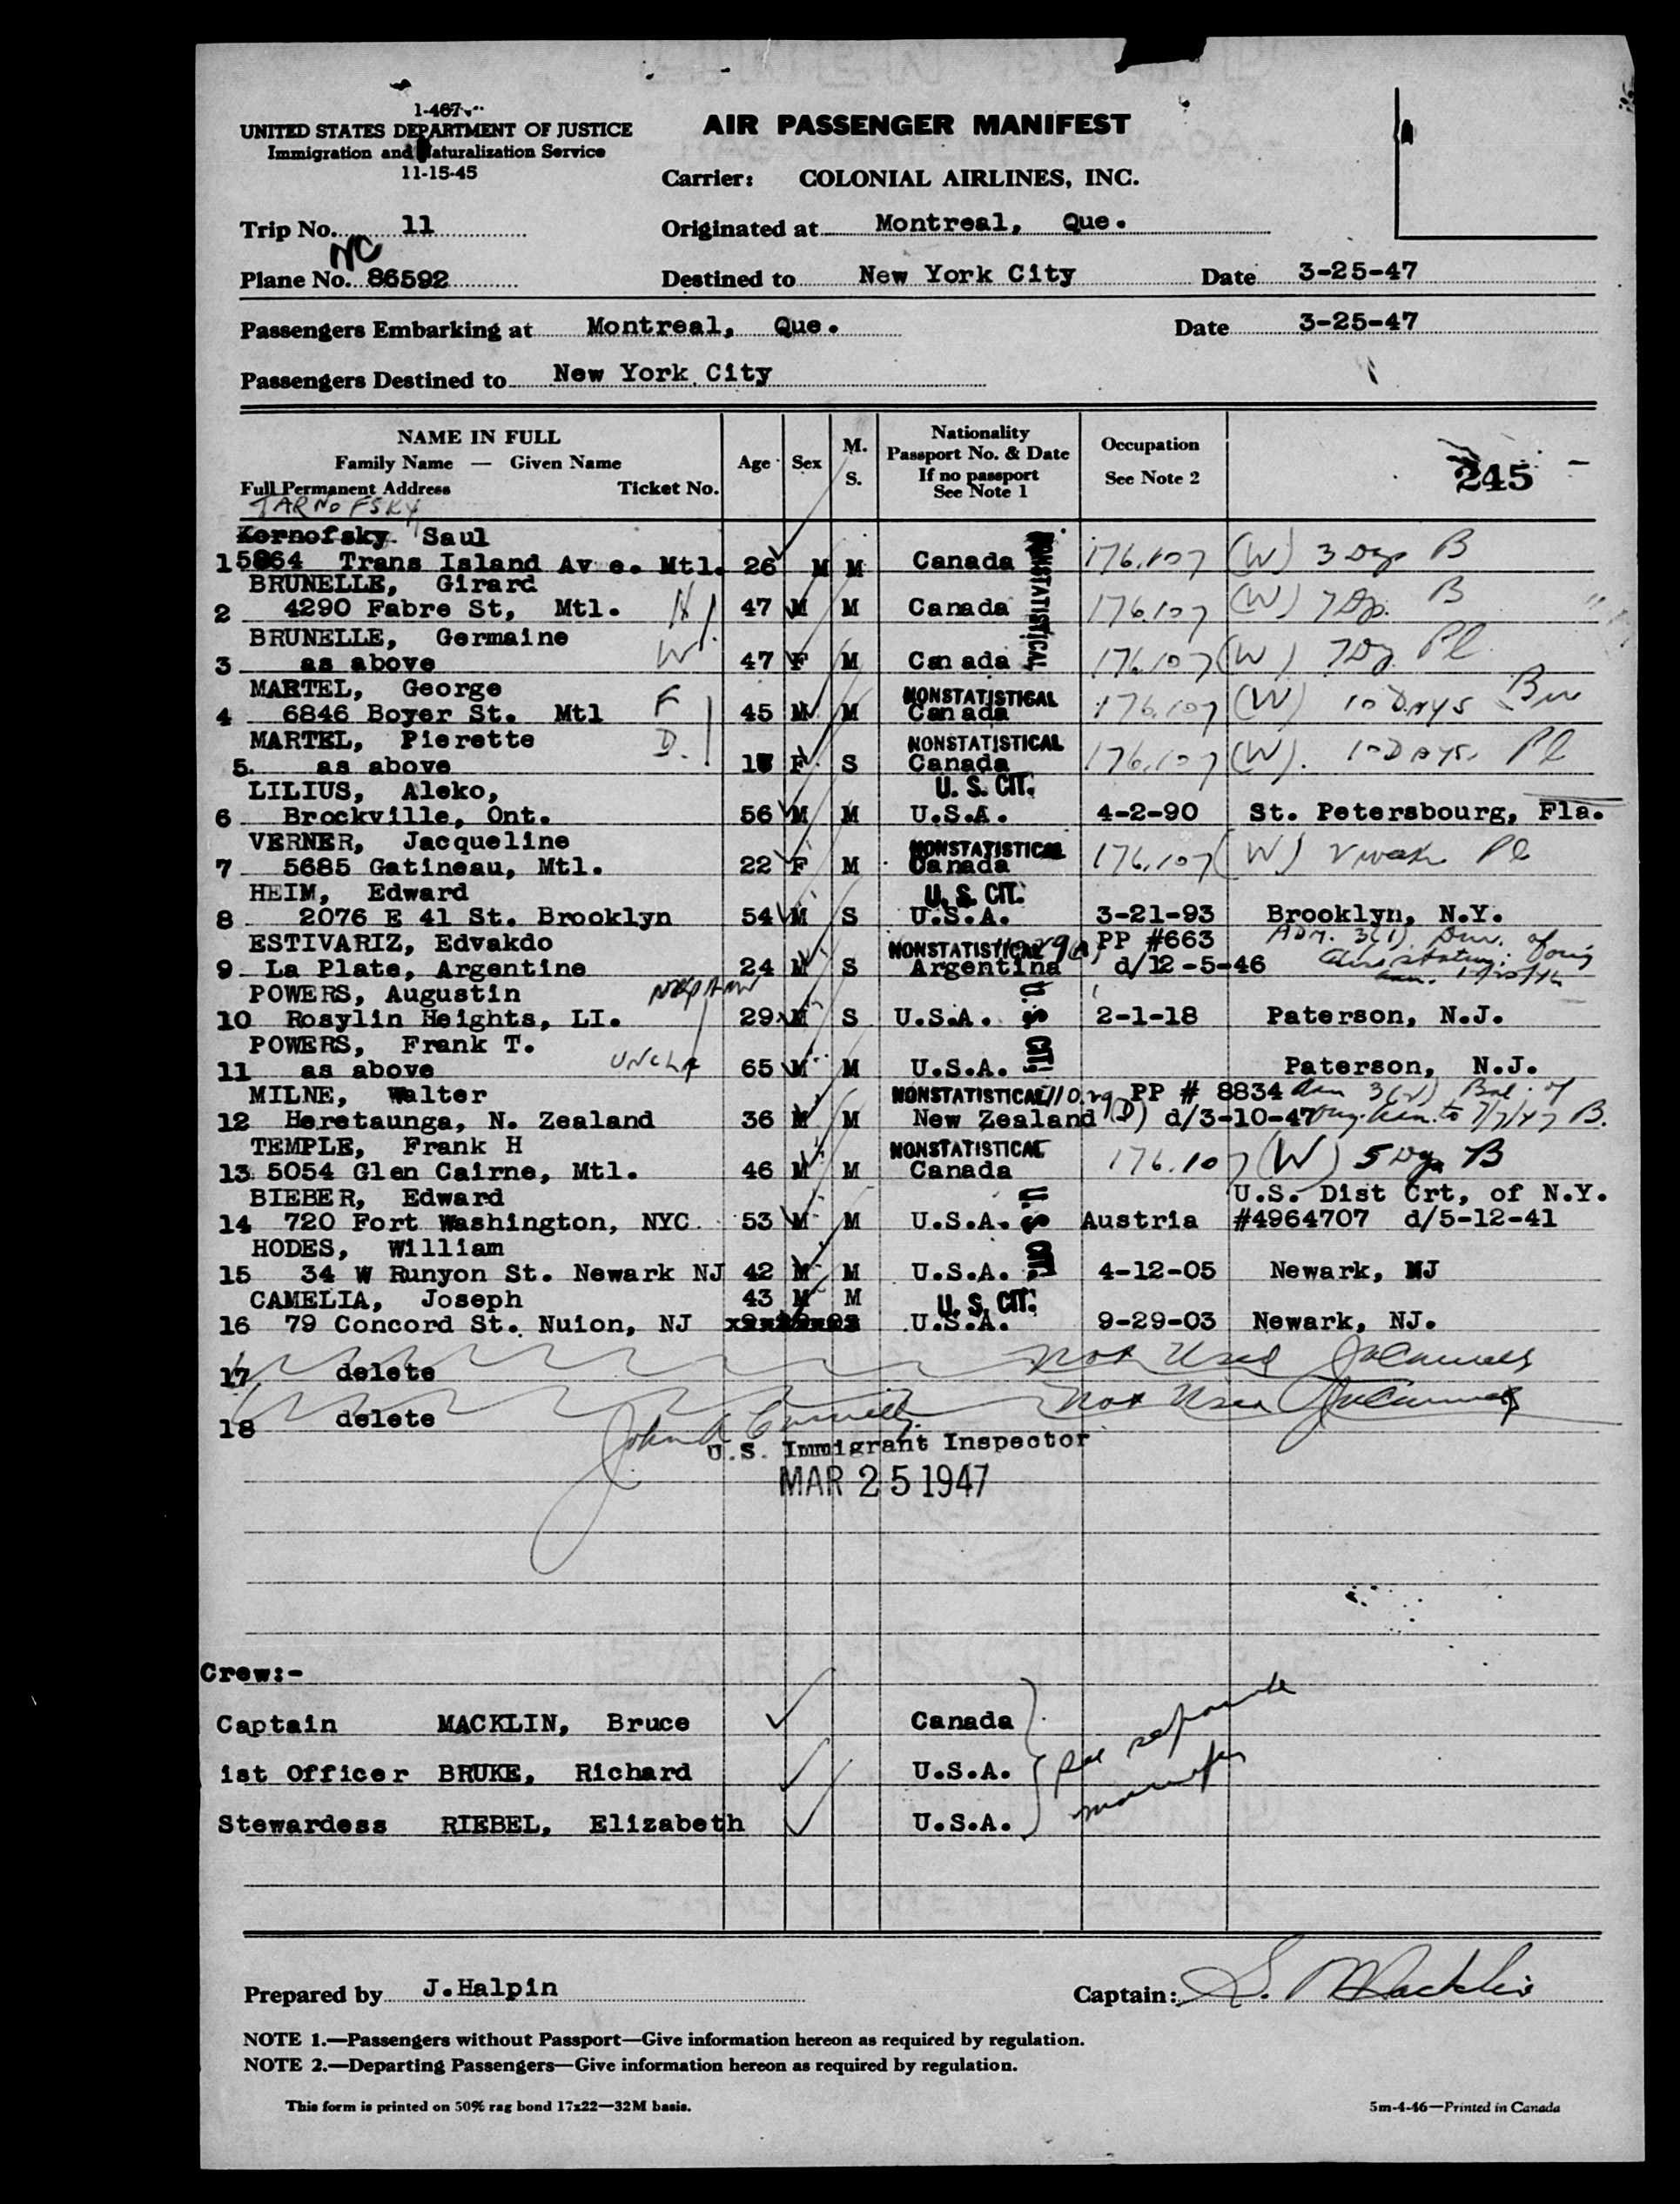 1-467
UNITED STATES DEPARTMENT OF JUSTICE
Immigration and Naturalization Service
11-15-45
AIR PASSENGER MANIFEST
Carrier: COLONIAL AIRLINES, INC.
Trip No. 11
Originated at Montreal, Que.
NC
Plane No. 86592
Destined to New York City Date 3-25-47
Passengers Embarking at Montreal, Que. Date 3-25-47
Passengers Destined to New York City
NAME IN FULL
Family Name — Given Name
Full Permanent Address Ticket No.
Age Sex M. S.
Nationality
Passport No. & Date
If no passport
See Note 1
Occupation
See Note 2
245
TARNOFSKY
Kornofsky Saul
1 5864 Trans Island Av e. Mtl. 26 M M Canada NONSTATISTICAL 176.107 (W) 3 Dys B
BRUNELLE, Girard
2 4290 Fabre St, Mtl. H 47 M M Canada 176.107 (W) 7 Dys. B
BRUNELLE, Germaine
3 as above W 47 F M Can ada 176.107 (W) 7 Dy Pl
MARTEL, George NONSTATISTICAL
4 6846 Boyer St. Mtl F 45 M M Can ada 176.107 (W) 10 DAYS
MARTEL, Pierette NONSTATISTICAL
5. as above D. F S Canada 176.107 (W). 10 DAYS. Pl
LILIUS, Aleko, U. S. CIT.
6 Brockville, Ont. 56 M M U.S.A. 4-2-90 St. Petersbourg, Fla.
VERNER, Jacqueline NONSTATISTICAL
7 5685 Gatineau, Mtl. 22 F M Canada 176.107 (W) Pl
HEIM, Edward U. S. CIT.
8 2076 E 41 St. Brooklyn 54 M S U.S.A. 3-21-93 Brooklyn, N.Y.
ESTIVARIZ, Edvakdo NONSTATISTICAL PP #663 Adm. 3(1)
9 La Plate, Argentine 24 M S Argentina d/12-5-46
POWERS, Augustin
10 Rosylin Heights, LI. 29 M S U.S.A. U. S. CIT. 2-1-18 Paterson, N.J.
POWERS, Frank T.
11 as above UNCLE 65 M M U.S.A. Paterson, N.J.
MILNE, Walter NONSTATISTICAL PP # 8834
12 Heretaunga, N. Zealand 36 M M New Zealand (D) d/3-10-47
TEMPLE, Frank H NONSTATISTICAL
13 5054 Glen Cairne, Mtl. 46 M M Canada 176.107 (W) 5 Dys B
BIEBER, Edward U.S. Dist Crt, of N.Y.
14 720 Fort Washington, NYC 53 M M U.S.A. U. S. CIT. Austria #4964707 d/5-12-41
HODES, William
15 34 W Runyon St. Newark NJ 42 M M U.S.A. 4-12-05 Newark, NJ
CAMELIA, Joseph 43 M M U. S. CIT.
16 79 Concord St. Nuion, NJ U.S.A. 9-29-03 Newark, NJ.
17 delete Not Used
18 delete Not Used
U.S. Immigrant Inspector
MAR 25 1947
Crew:-
Captain MACKLIN, Bruce Canada
1st Officer BRUKE, Richard U.S.A.
Stewardess RIEBEL, Elizabeth U.S.A.
see separate
manifest
Prepared by J.Halpin
Captain: S. Macklin
NOTE 1.—Passengers without Passport—Give information hereon as required by regulation.
NOTE 2.—Departing Passengers—Give information hereon as required by regulation.
This form is printed on 50% rag bond 17x22—32M basis.
5m-4-46—Printed in Canada